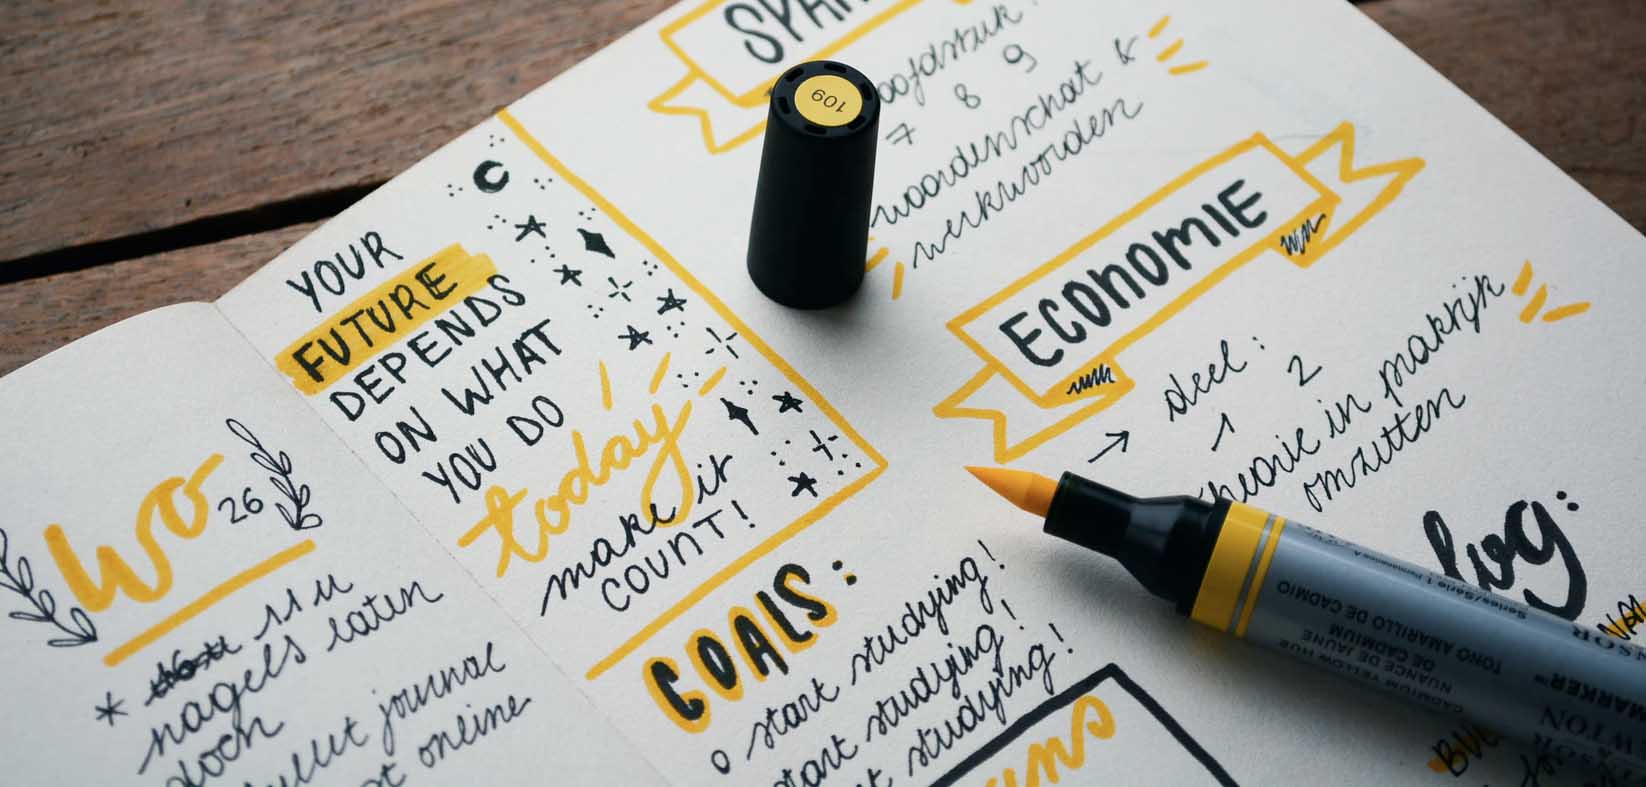 wo
26
11 u
nagels laten
doen
bullet journal
online
YOUR
FUTURE
DEPENDS
ON WHAT
YOU DO
today
make it
COUNT!
GOALS:
o start studying!
start studying!
studying!
7 8 9
woordenschat &
werkwoorden
109
ECONOMIE
→ deel:
1 2
theorie in praktijk
omzetten
CADMIUM YELLOW HUE
NUANCE DE JAUNE
DE CADMIUM
TONO AMARILLO DE CADMIO